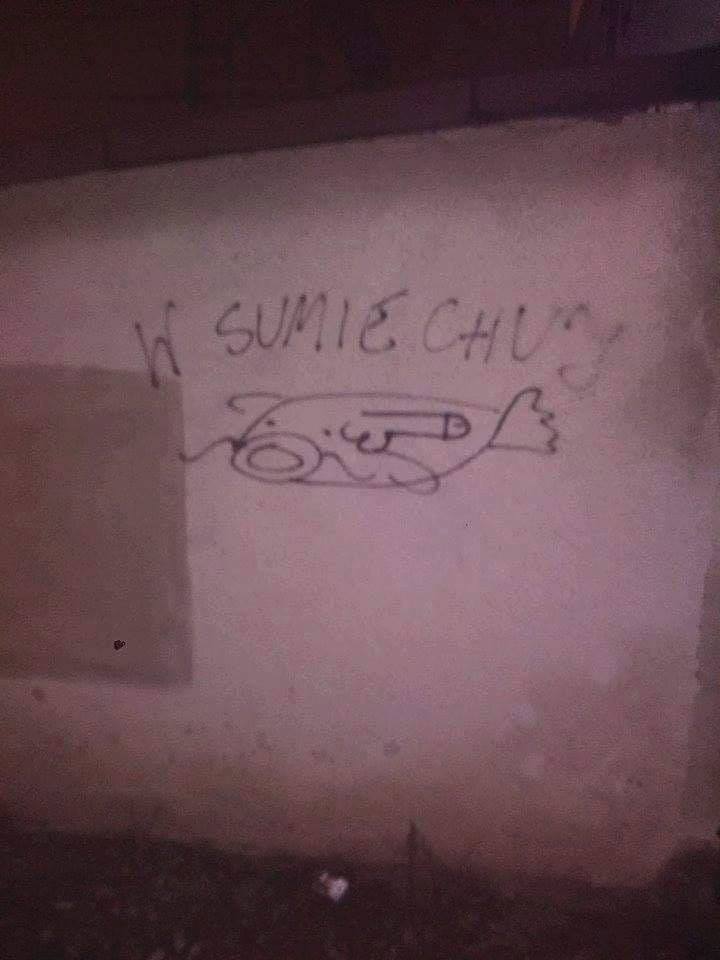 W SUMIE CHUJ